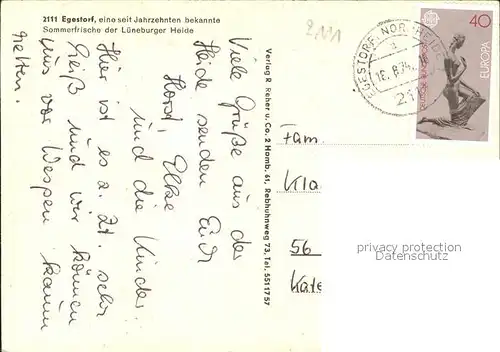 2111 Egestorf, eine seit Jahrzehnten bekannte
Sommerfrische der Lüneburger Heide
2111
Viele Grüße aus der
Heide senden Euch
Horst, Elke
und die Kinder.
Hier ist es z. Zt. sehr
heiß und wir können
uns vor Wespen kaum
retten.
Verlag R. Reher u. Co. 2 Hamb. 61, Rebhuhnweg 73, Tel. 5511757
EGESTORF, NORDHEIDE
a
16.8.74
211
40
EUROPA
DEUTSCHE BUNDESPOST
Fam.
Kla
56
Kate
privacy protection
Datenschutz